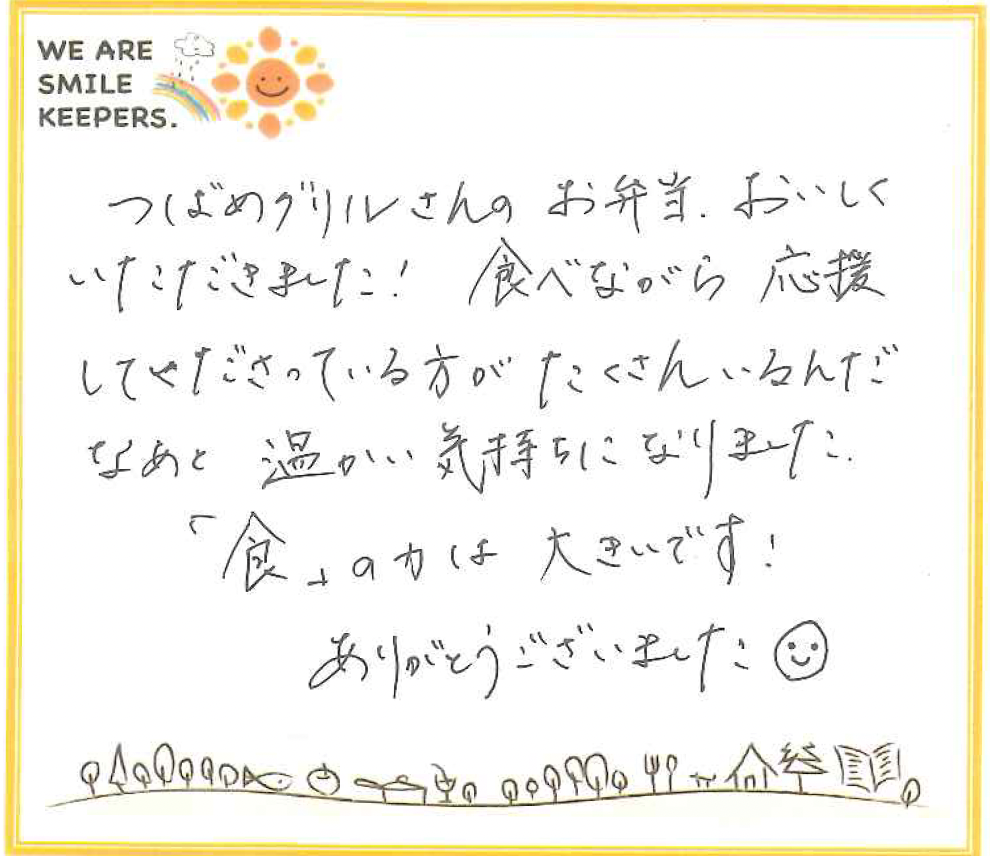 WE ARE
SMILE
KEEPERS.
つばめグリルさんの お弁当、おいしく
いただきました! 食べながら 応援
してくださっている方が たくさんいるんだ
なぁと 温かい 気持ちになりました.
「食」の力は 大きいです!
ありがとうございました